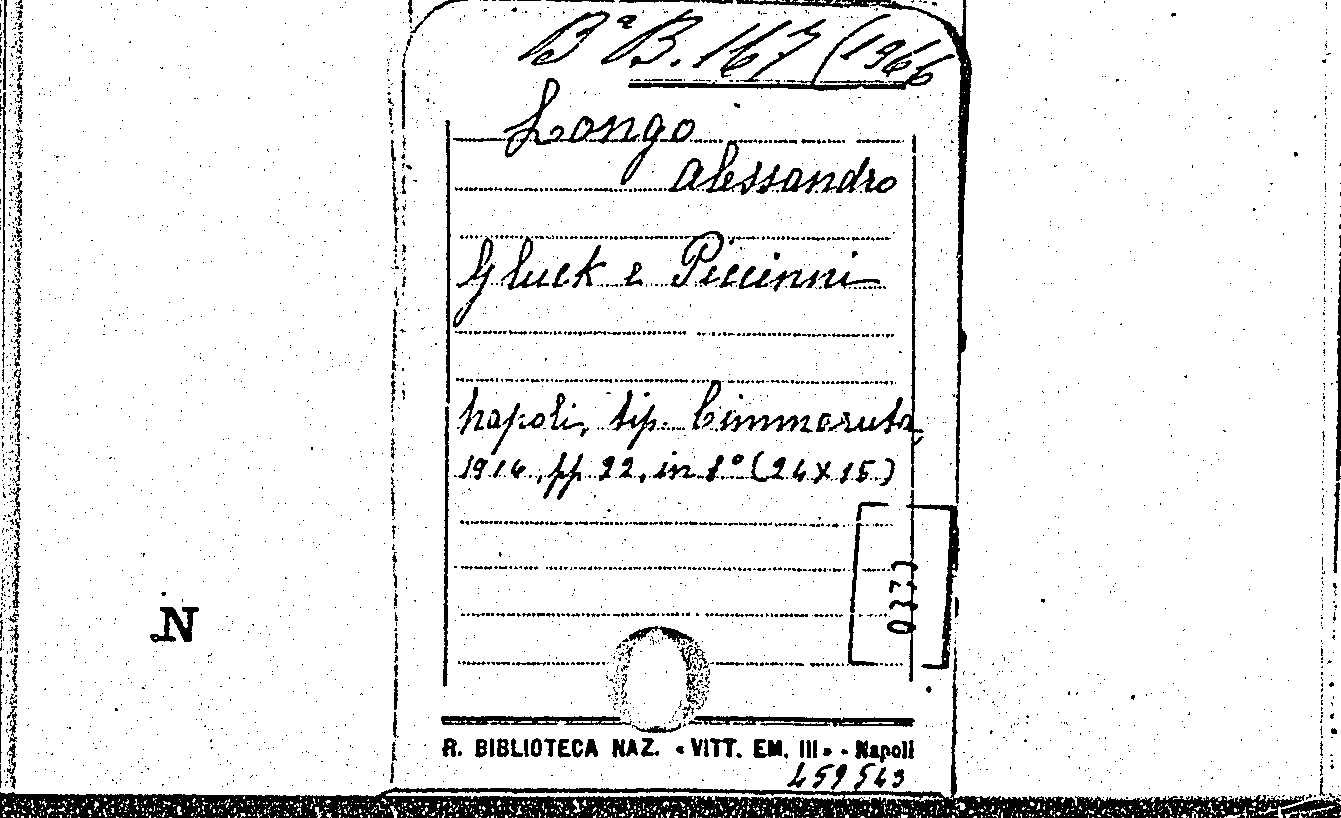 Bª B. 167 (1966
Longo
Alessandro
Gluck e Piccinni
Napoli, tip. Cimmaruta,
1914, pp 22, in 8° (24x15)
0373
N
R. BIBLIOTECA NAZ. «VITT. EM. III» - Napoli
459543